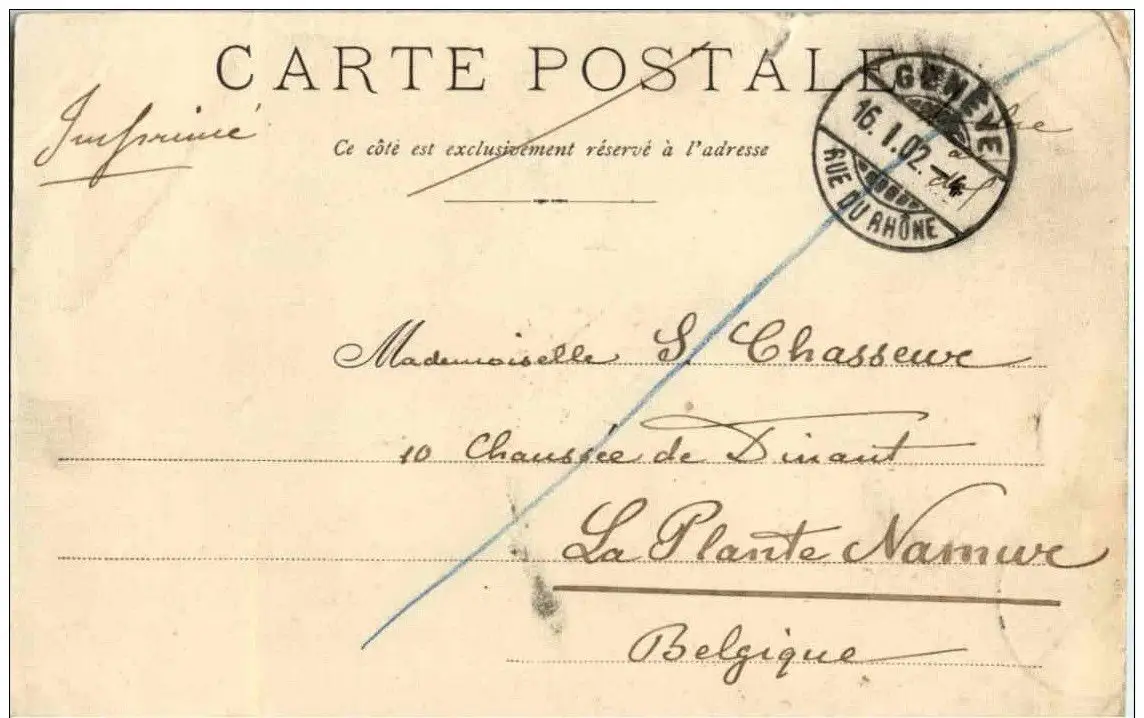 CARTE POSTALE
Imprimé
Ce côté est exclusivement réservé à l'adresse
GENÈVE
16. I. 02. - 4
RUE DU RHÔNE
à
Mademoiselle S. Chasseur
10 Chaussée de Dinant
La Plante Namur
Belgique